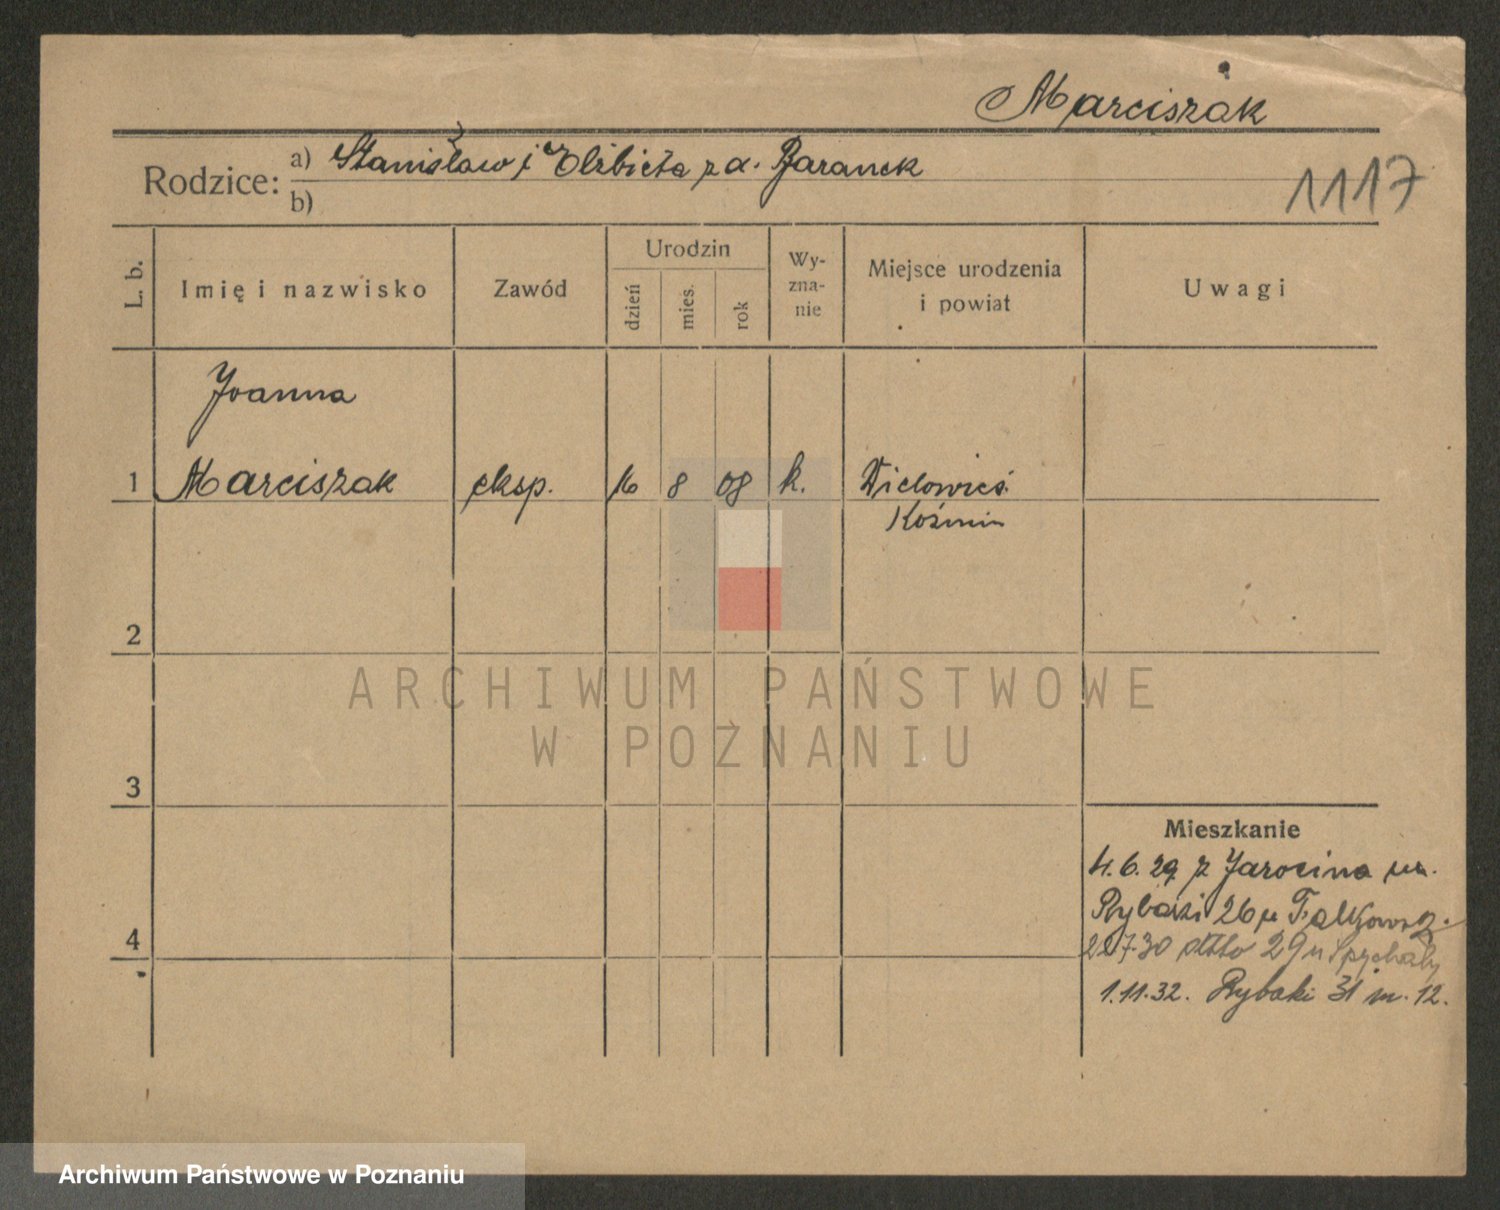 Marciszak
Rodzice: a) Stanisław i Elżbieta z d. Baranek
b)
1117
L. b.
Imię i nazwisko
Zawód
Urodzin
dzień
mies.
rok
Wy-
zna-
nie
Miejsce urodzenia
i powiat
Uwagi
Joanna
1 Marciszak eksp. 16 8 08 k. Wielowieś
Koźmin
2
ARCHIWUM PAŃSTWOWE
W POZNANIU
3
Mieszkanie
4.6.29 z Jarocina
Rybaki 26 u Falkowsk.
4
22.7.30 otto 29 u Spychały
1.11.32. Rybaki 31 m. 12.
Archiwum Państwowe w Poznaniu